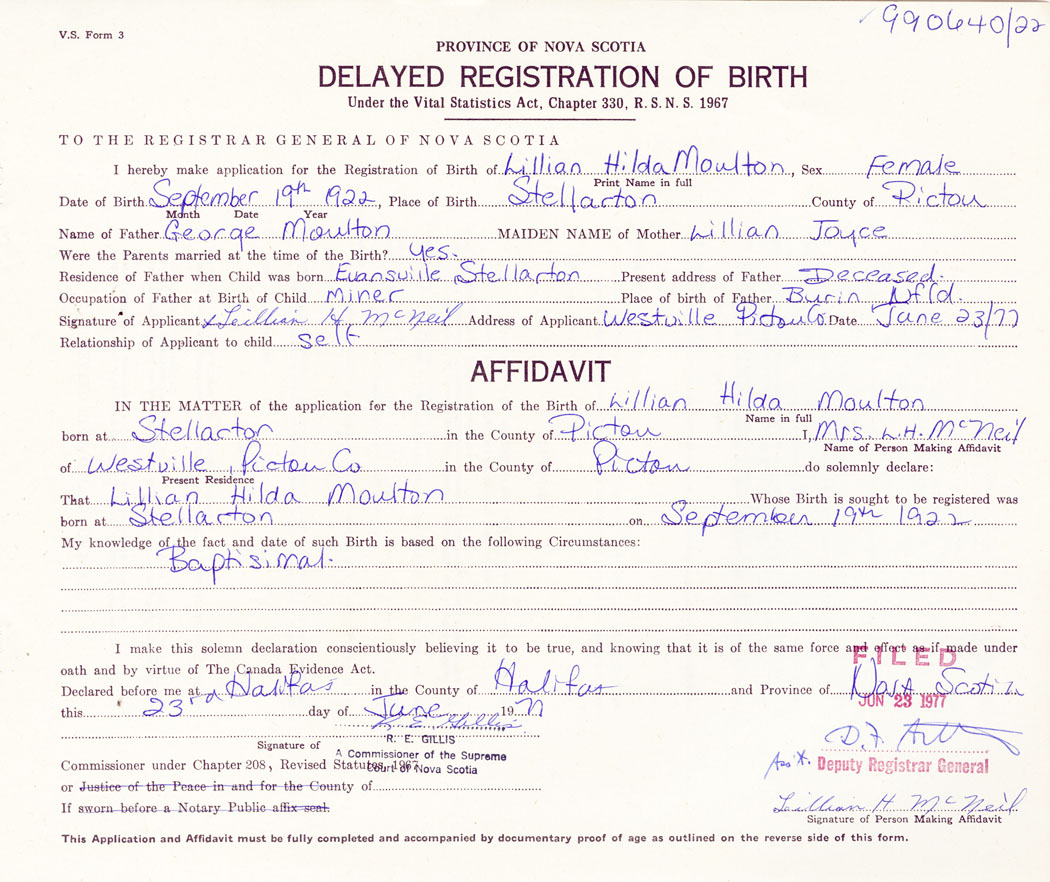 V.S. Form 3
990640/22
PROVINCE OF NOVA SCOTIA
DELAYED REGISTRATION OF BIRTH
Under the Vital Statistics Act, Chapter 330, R.S.N.S. 1967
TO THE REGISTRAR GENERAL OF NOVA SCOTIA
I hereby make application for the Registration of Birth of Lillian Hilda Moulton, Sex Female
Print Name in full
Date of Birth September 19th 1922, Place of Birth Stellarton County of Pictou
Month Date Year
Name of Father George Moulton MAIDEN NAME of Mother Lillian Joyce
Were the Parents married at the time of the Birth? yes.
Residence of Father when Child was born Evansville Stellarton Present address of Father Deceased.
Occupation of Father at Birth of Child miner Place of birth of Father Burin Nfld.
Signature of Applicant x Leillian H. McNeil Address of Applicant Westville Pictou Co Date June 23/77
Relationship of Applicant to child self
AFFIDAVIT
IN THE MATTER of the application for the Registration of the Birth of Lillian Hilda Moulton
Name in full
born at Stellarton in the County of Pictou I, Mrs. L.H. McNeil
Name of Person Making Affidavit
of Westville, Pictou Co in the County of Pictou do solemnly declare:
Present Residence
That Lillian Hilda Moulton Whose Birth is sought to be registered was
born at Stellarton on September 19th 1922
My knowledge of the fact and date of such Birth is based on the following Circumstances:
Baptisimal.
I make this solemn declaration conscientiously believing it to be true, and knowing that it is of the same force and effect as if made under
oath and by virtue of The Canada Evidence Act.
FILED
Declared before me at Halifax in the County of Halifax and Province of Nova Scotia
JUN 23 1977
this 23rd day of June 1977
R E Gillis
R. E. GILLIS
Signature of A Commissioner of the Supreme
Commissioner under Chapter 208, Revised Statutes, 1967
Court of Nova Scotia
Ass't. Deputy Registrar General
or Justice of the Peace in and for the County of
If sworn before a Notary Public affix seal.
Leillian H McNeil
Signature of Person Making Affidavit
This Application and Affidavit must be fully completed and accompanied by documentary proof of age as outlined on the reverse side of this form.